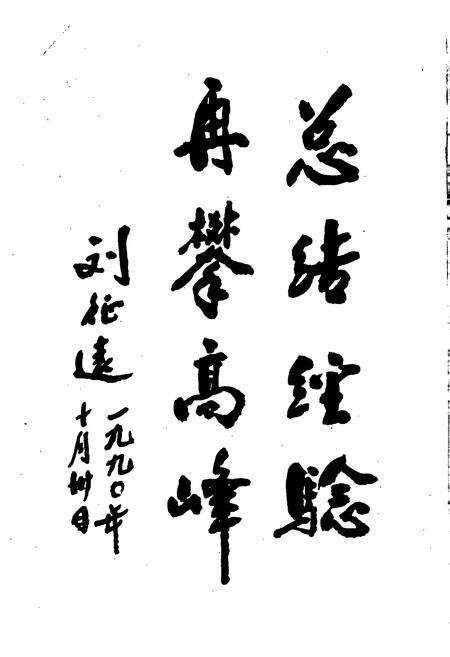 总结经验
再攀高峰
刘征遠
一九九〇年
十月卅日